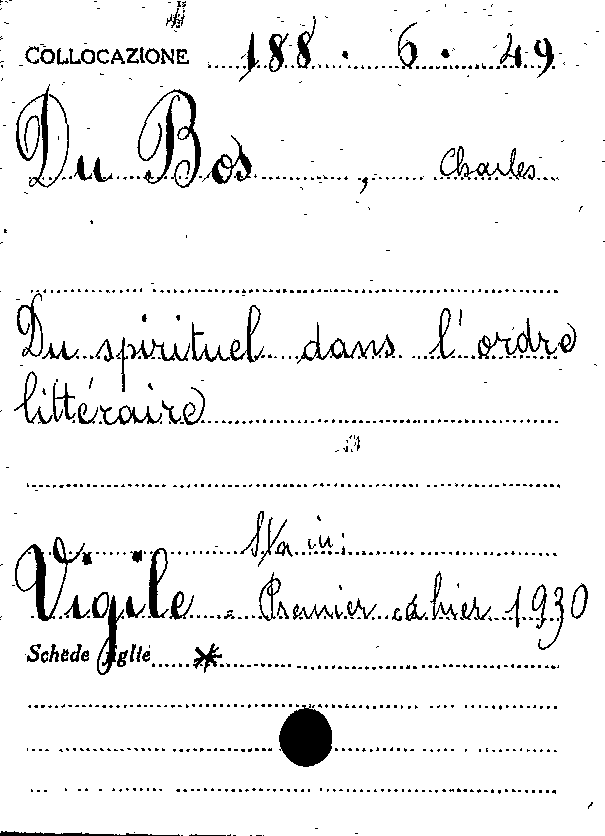 COLLOCAZIONE 188. 6. 49
Du Bos, Charles
Du spirituel dans l'ordre
littéraire
Sta in:
Vigile - Premier cahier 1930
Schede figlie *